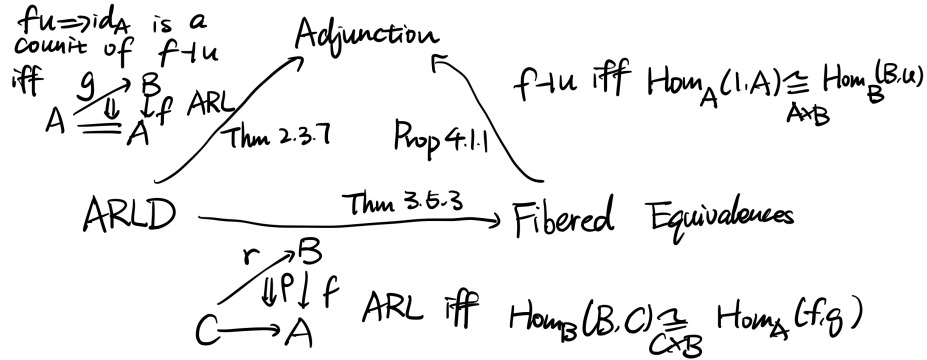 fu⇒id_A is a
counit of f⊣u
iff
g B
⇓ ↓f ARL
A A
Adjunction
f⊣u iff Hom_A(1,A) ≅_{A×B} Hom_B(B,u)
Thm 2.3.7
Prop 4.1.1
ARLD
Thm 3.5.3
Fibered Equivalences
r B
⇓ρ ↓ f
C → A
ARL iff Hom_B(B,C) ≅_{C×B} Hom_A(f,g)